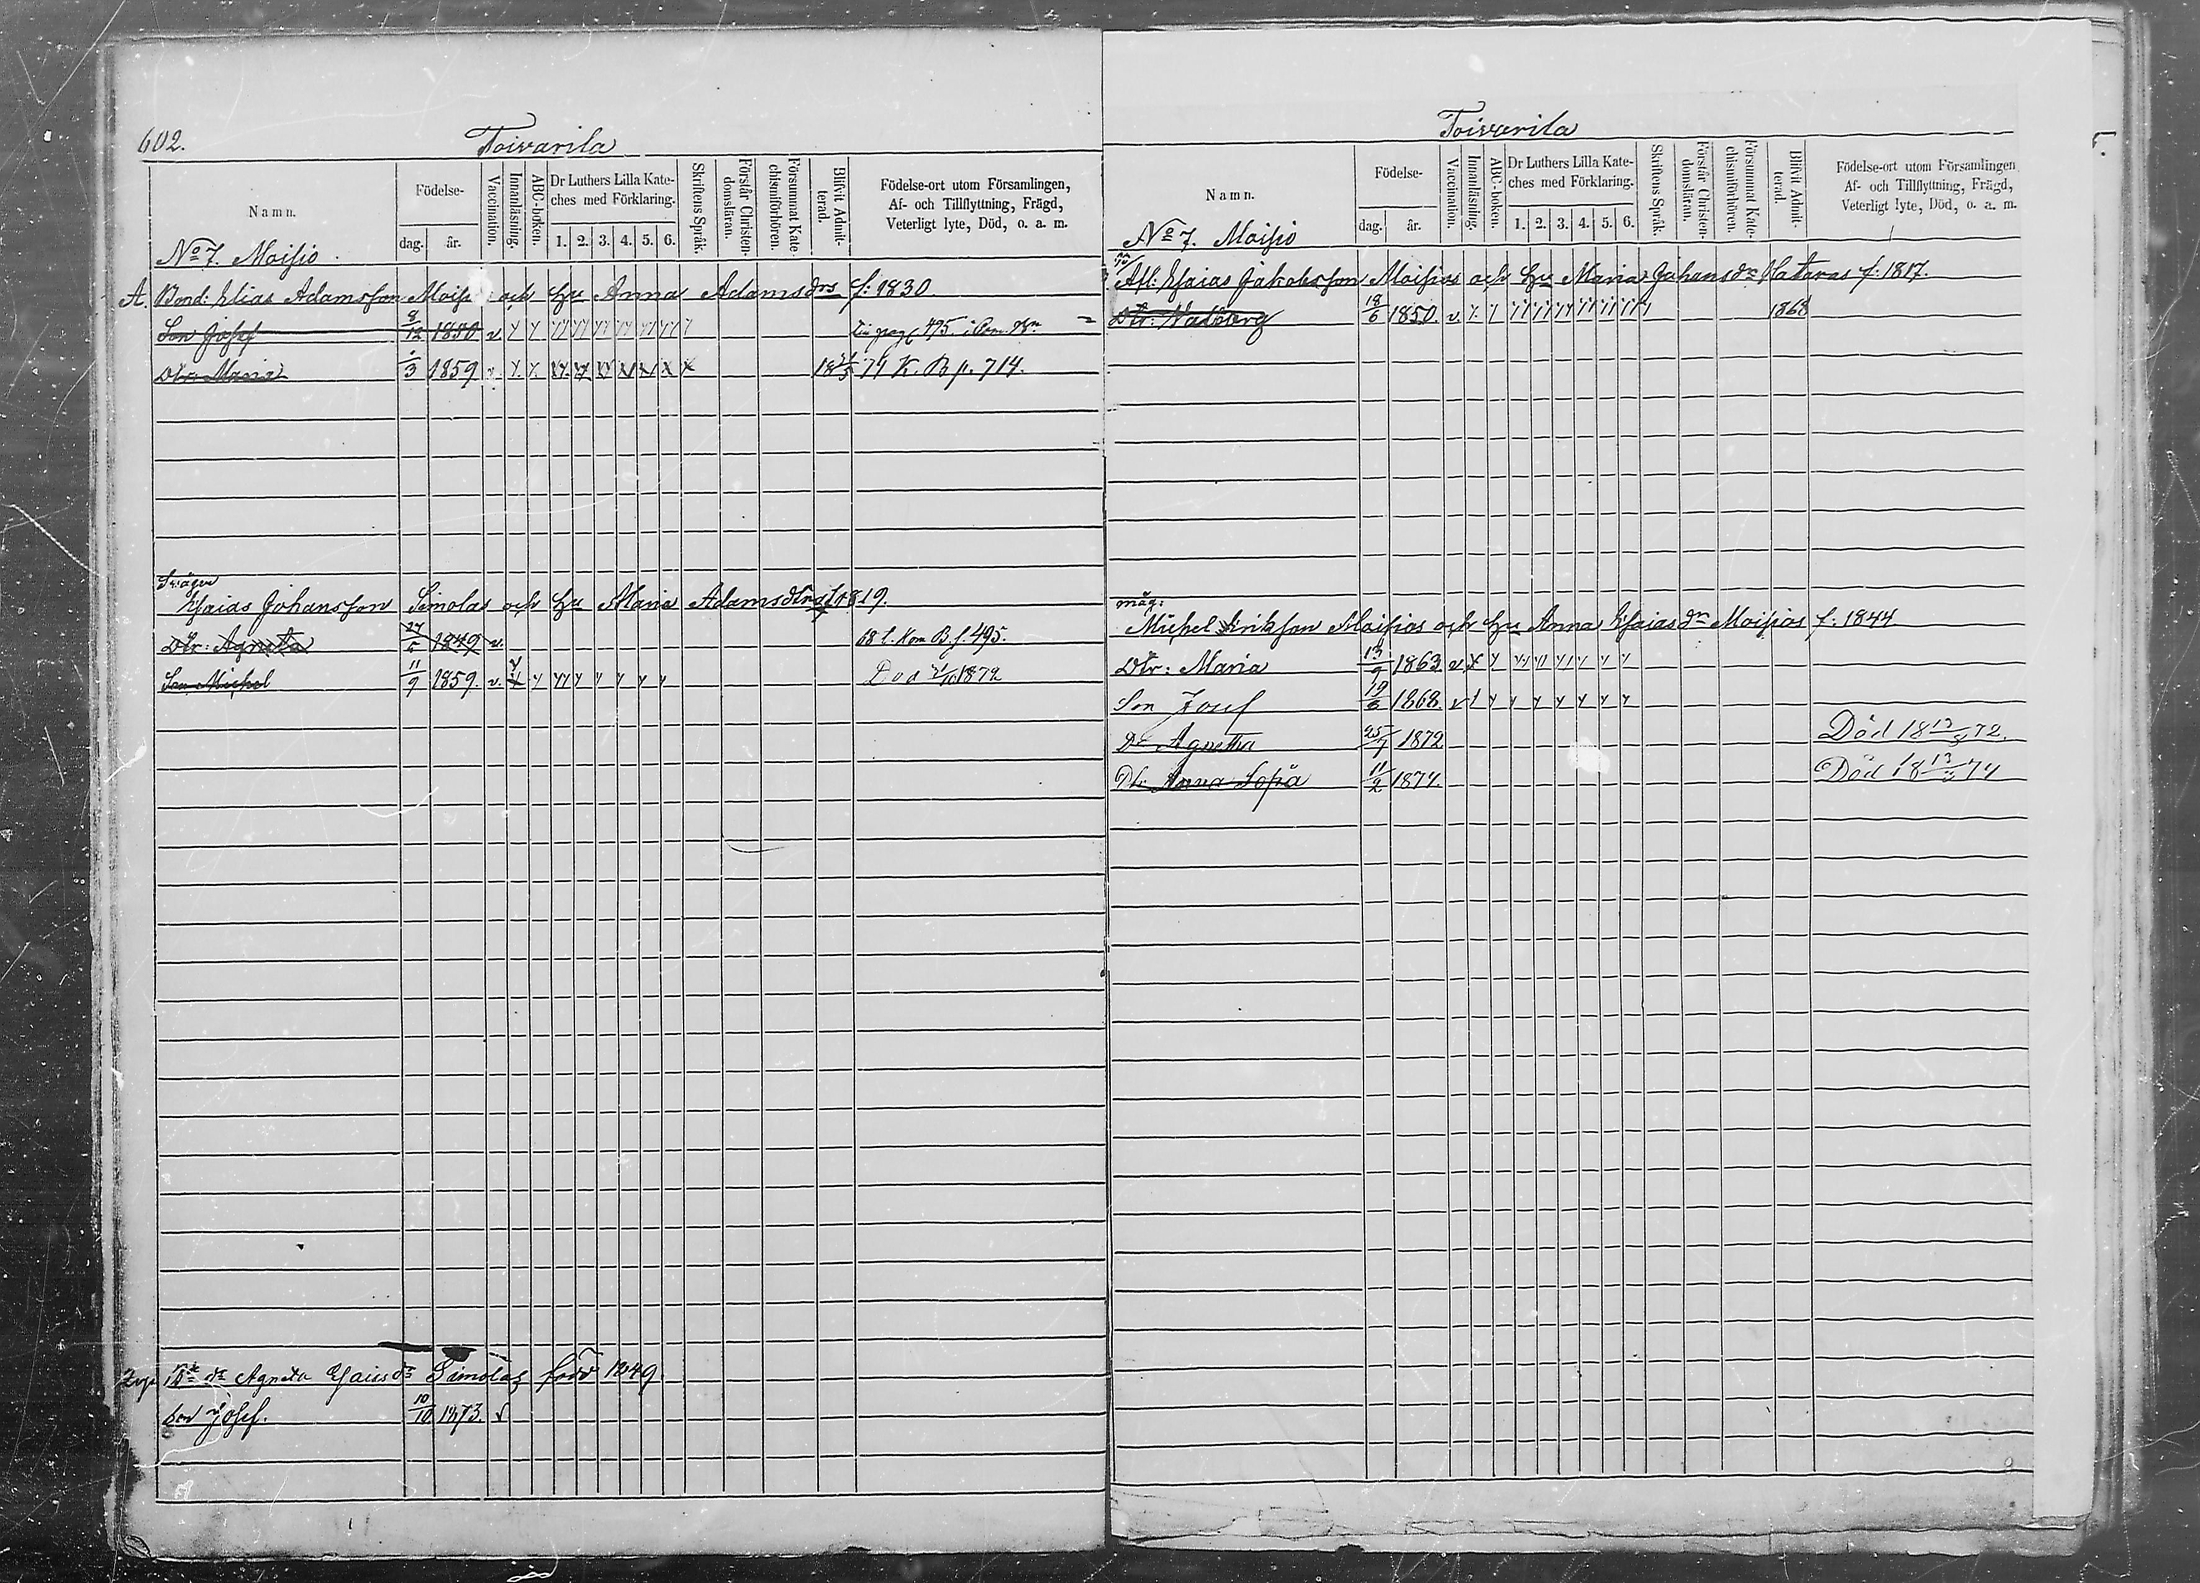 602.
Toivarila
Namn.
Födelse-
dag. år.
Vaccination.
Innanläsning.
ABC-boken.
Dr Luthers Lilla Kate-
ches med Förklaring.
1. 2. 3. 4. 5. 6.
Skriftens Språk.
Förstår Christen-
domsläran.
Försummat Kate-
chismiförhören.
Blifvit Admit-
terad.
Födelse-ort utom Församlingen,
Af- och Tillflyttning, Frägd,
Veterligt lyte, Död, o. a. m.
No 7. Moisio
A. Bond: Elias Adamsson Moisio och Hu Anna Adamsdrs f: 1830
Son Josef 8/12 1850 v pag 495
Dtr Maria 1/3 1859 v. 18 74 K. B p. 714.
Svåger
Esaias Johansson Simolas och Hu Maria Adamsdtrs f. 1819.
Dtr: Agneta 27/5 1849 v. 68 l. Kom B. p. 495.
Son Michel 11/9 1859. v. Död 1872
Agneta Esaiasdr Simolas född 1849.
Son Josef. 10/10 1873. v
Toivarila
Namn.
Födelse-
dag. år.
Vaccination.
Innanläsning.
ABC-boken.
Dr Luthers Lilla Kate-
ches med Förklaring.
1. 2. 3. 4. 5. 6.
Skriftens Språk.
Förstår Christen-
domsläran.
Försummat Kate-
chismiförhören.
Blifvit Admit-
terad.
Födelse-ort utom Församlingen
Af- och Tillflyttning, Frägd,
Veterligt lyte, Död, o. a. m.
No 7. Moisio
Afl: Esaias Jakobsson Moisios och Hu Maria Johansdr Hataras f: 1817.
Dtr: Walborg 18/6 1850. v. 1868
måg:
Michel Eriksson Moisios och Hu Anna Esaiasdr Moisios f: 1844
Dtr: Maria 13/9 1863 v
Son Josef 19/6 1868. v
Dr Agnetha 25/7 1872 Död 18 72.
Dtr Anna Sofia 11/2 1874. Död 18 74